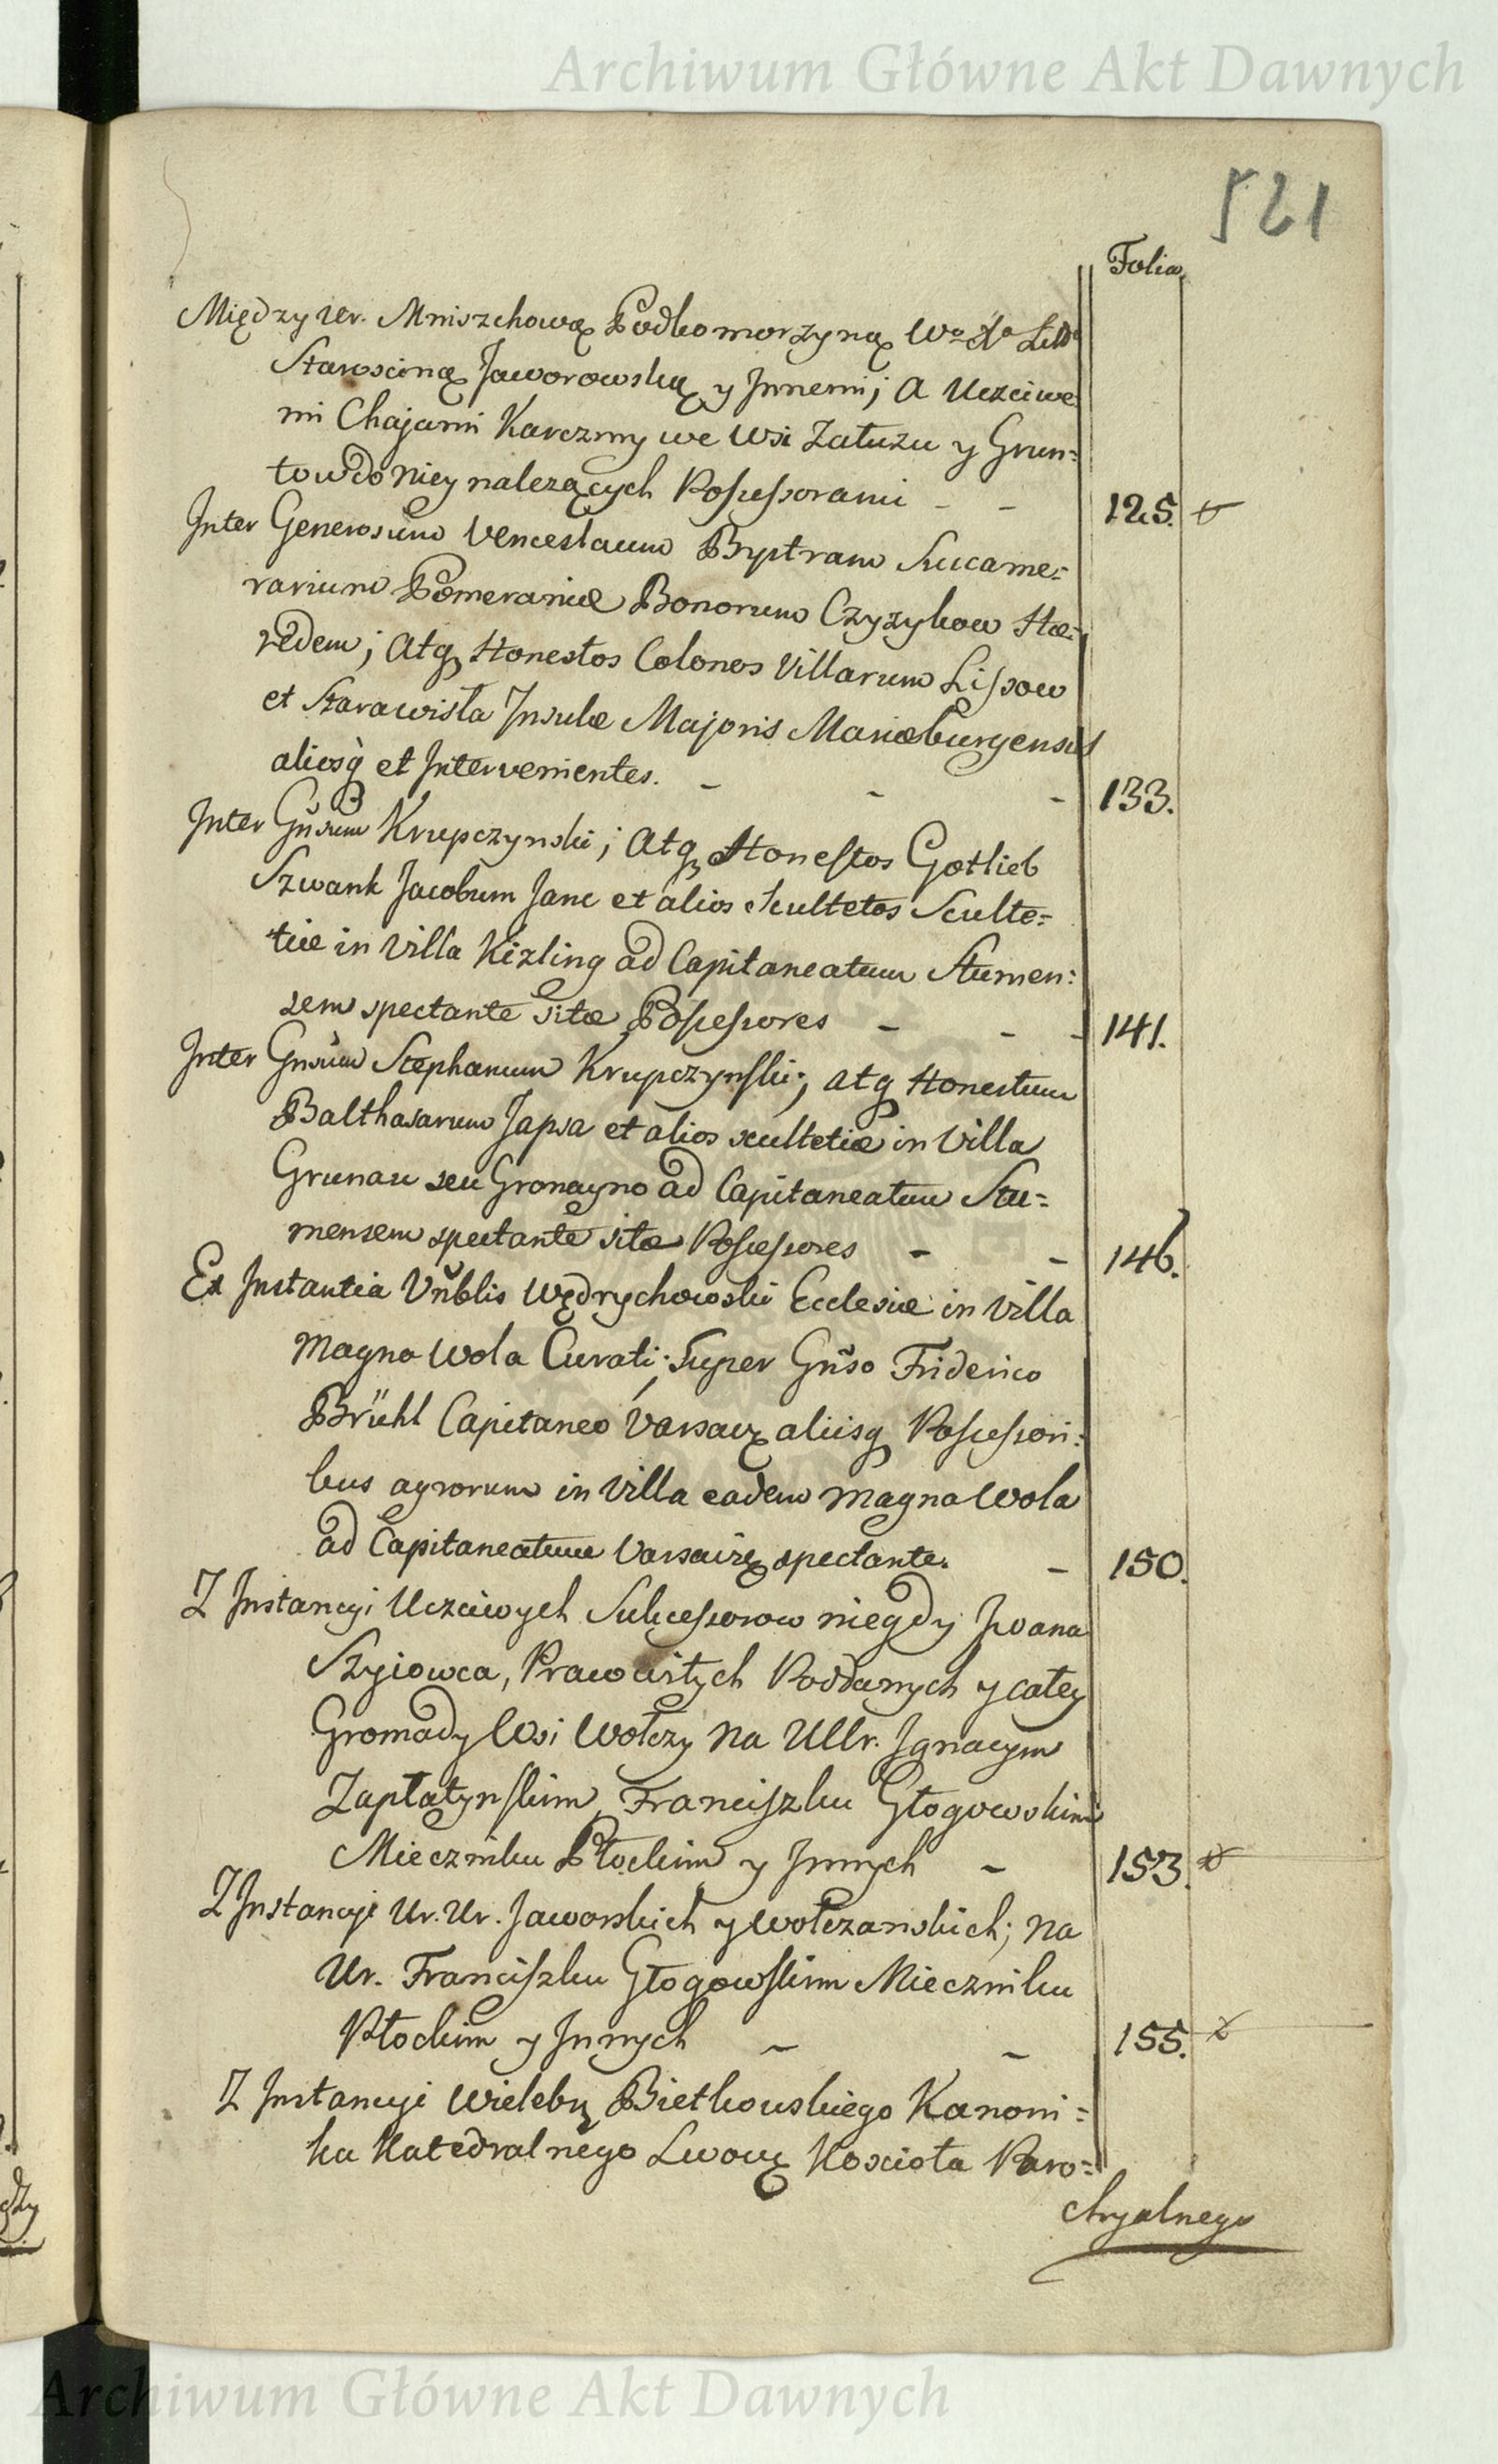 Archiwum Główne Akt Dawnych
521
Folia
Między Ur. Mniszchową Podkomorzyną Wo Xa Litt
Starosciną Jaworowską y Jnnemi; a Uczciwe=
mi Chajami Karczmy we Wsi Załużu y Grun=
tow do niey należących Possessorami - - 125.
Inter Generosum Venceslaum Bystram Succame=
rarium Pomeraniæ Bonorum Czyzykow Hæ=
redem; Atq Honestos Colonos Villarum Lissow
et Starawisła Insulæ Majoris Mariæburgensis
aliosq et Intervenientes. - - - 133.
Inter Gnsum Krupczynski; Atq Honestos Gotlieb
Szwank Jacobum Janc et alios Scultetos Sculte=
tiæ in Villa Kizling ad Capitaneatum Stumen=
sem spectante sitæ Possessores - - - 141.
Inter Gnsum Stephanum Krupczynski; atq Honestum
Balthasarum Japsa et alios scultetiæ in Villa
Grunau seu Gronayno ad Capitaneatum Stu=
mensem spectante sitæ Possessores - - 146.
Ex Instantia Vnblis Wędrychowski Ecclesiæ in Villa
Magna Wola Curati; Super Gnso Friderico
Brühl Capitaneo Varsav aliisq Possessori=
bus agrorum in Villa eadem Magna Wola
ad Capitaneatum Varsavien spectante. - 150.
Z Instancyi Uczciwych Sukcessorow niegdy Iwana
Szyiowca, Prawowitych Poddanych y całey
Gromady Wsi Wołczy na UUr. Ignacym
Zapłatynskim, Franciszku Głogowskim
Mieczniku Płockim y Jnnych - 153.
Z Instancyi Ur. Ur. Jaworskich y Wołczanskich; na
Ur. Franciszku Głogowskim Mieczniku
Płockim y Jnnych - - 155.
Z Instancyi Wieleby Bietkouskiego Kanoni=
ka Katedralnego Lwow Koscioła Paro=
chyalnego
Archiwum Główne Akt Dawnych